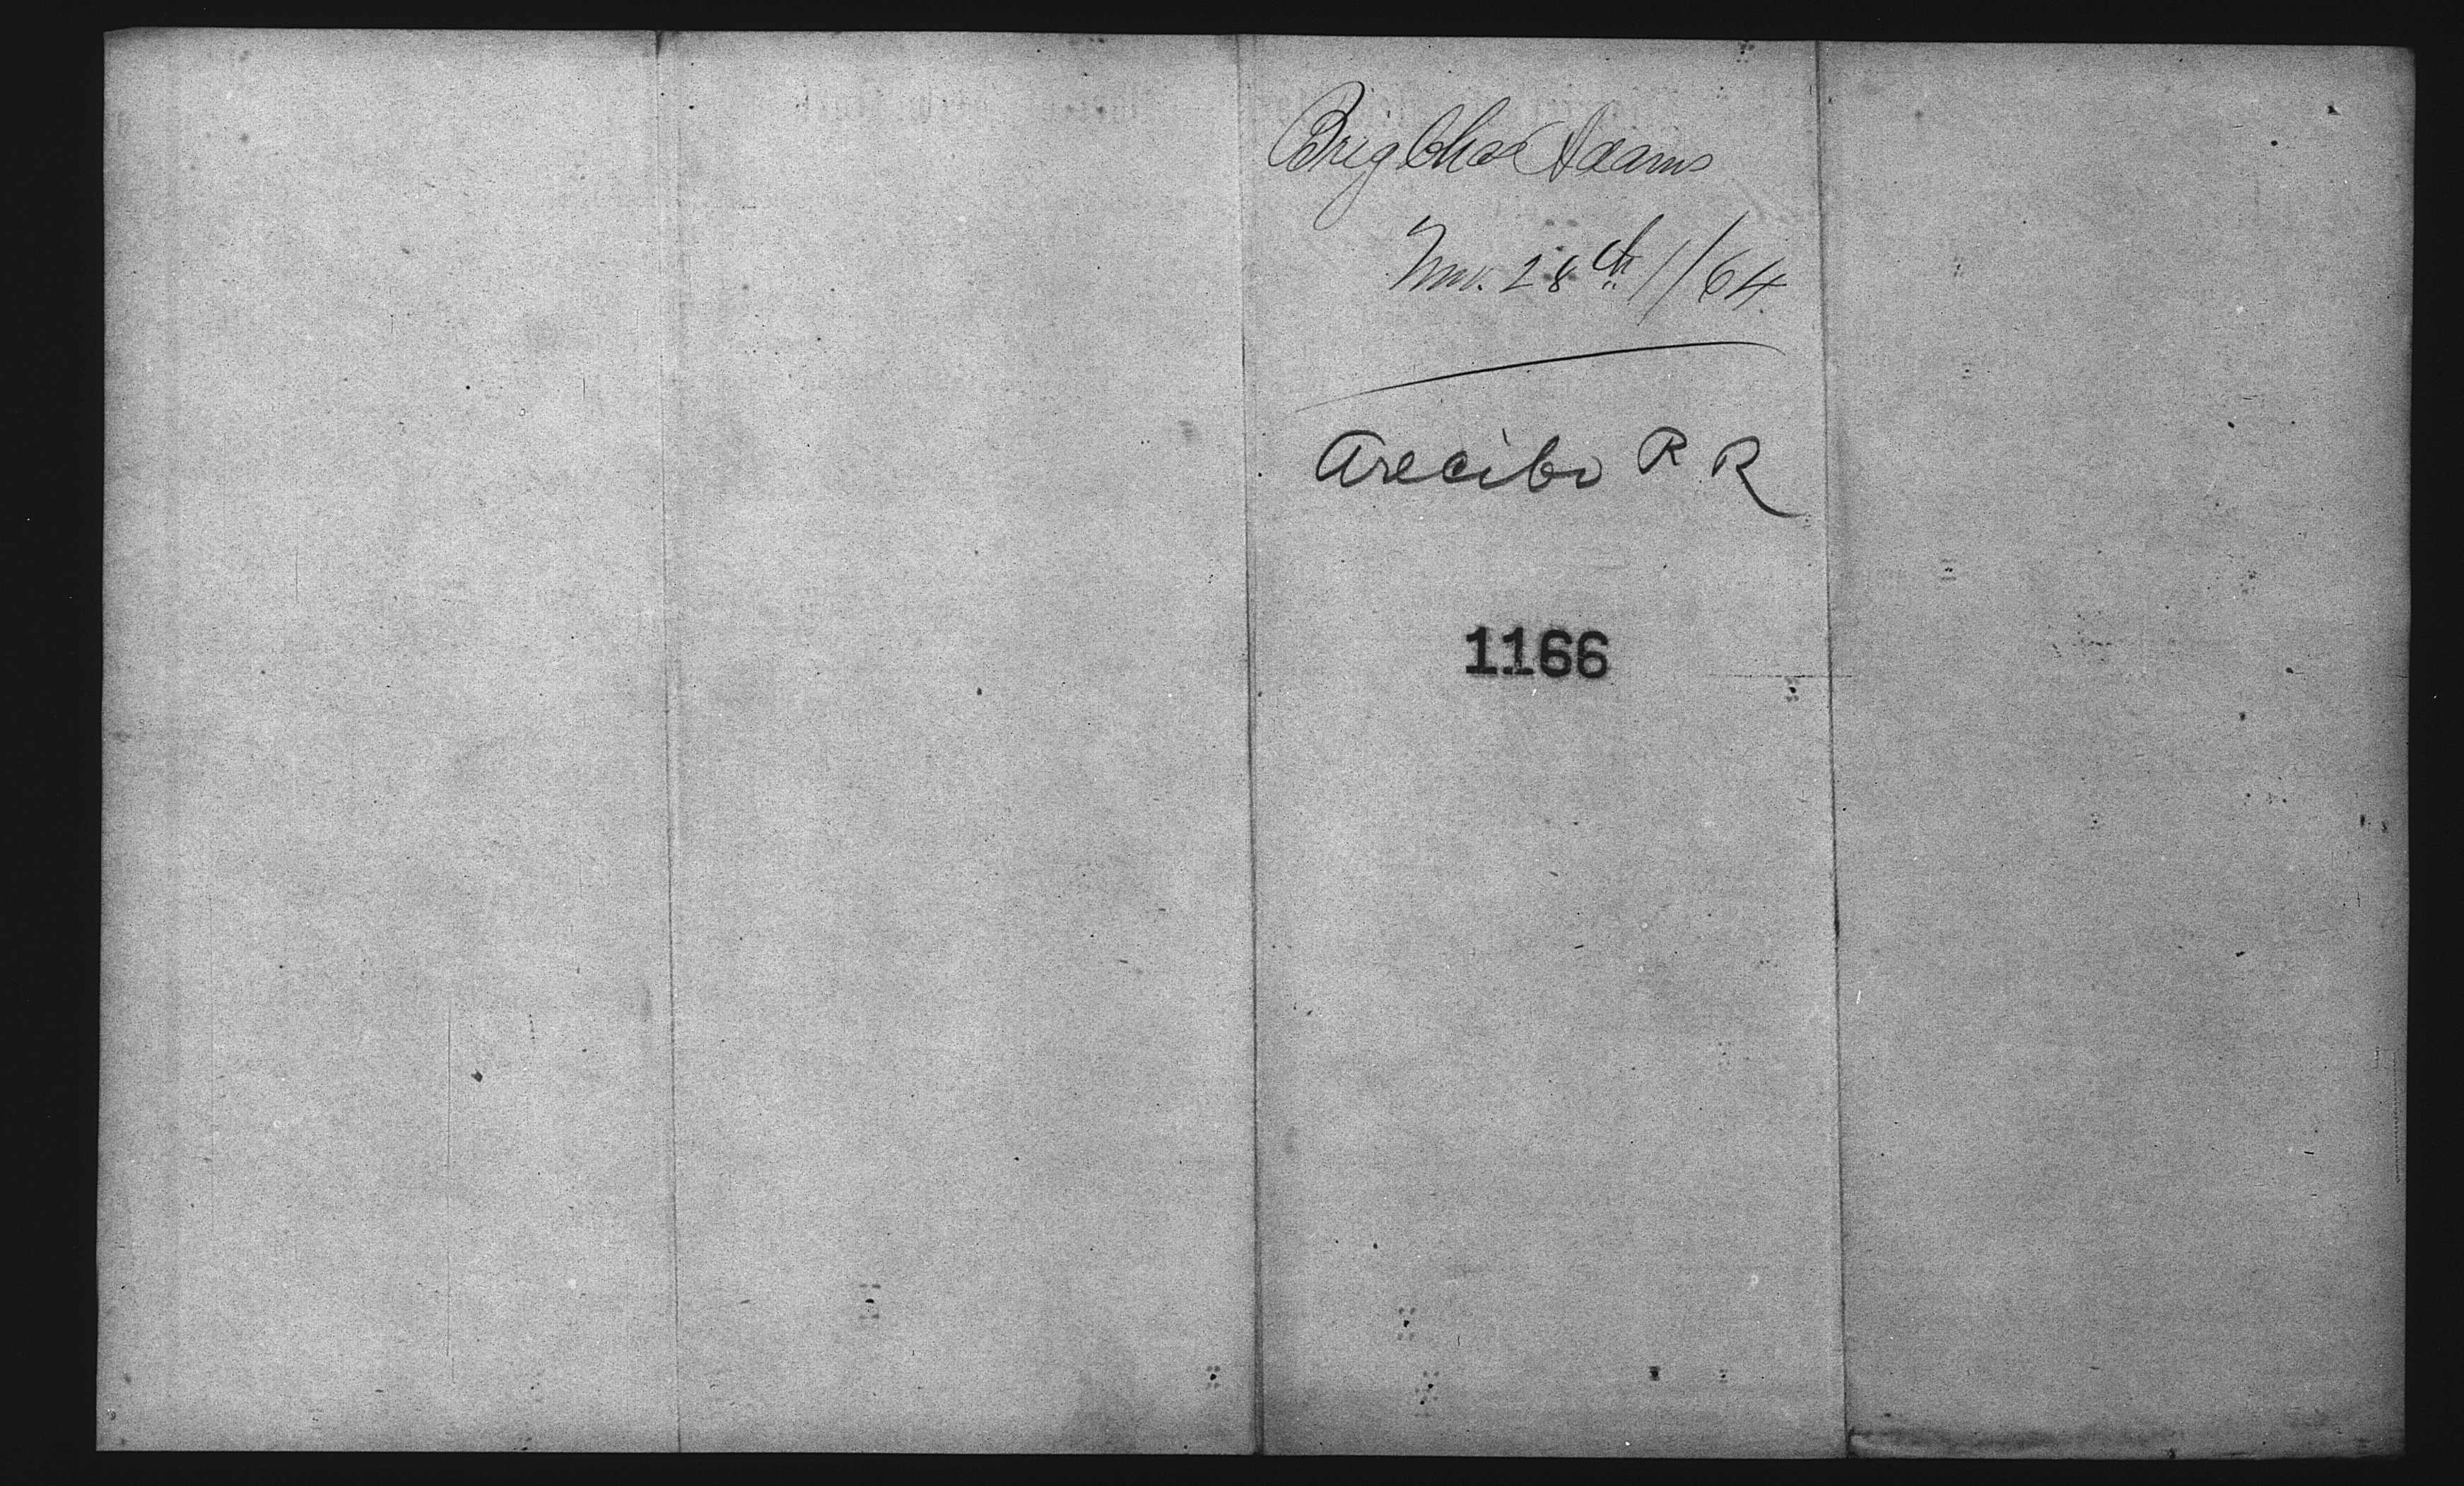 Brig Chas Adams
Nov. 28th 1/64.
Arecibo P. R
1166